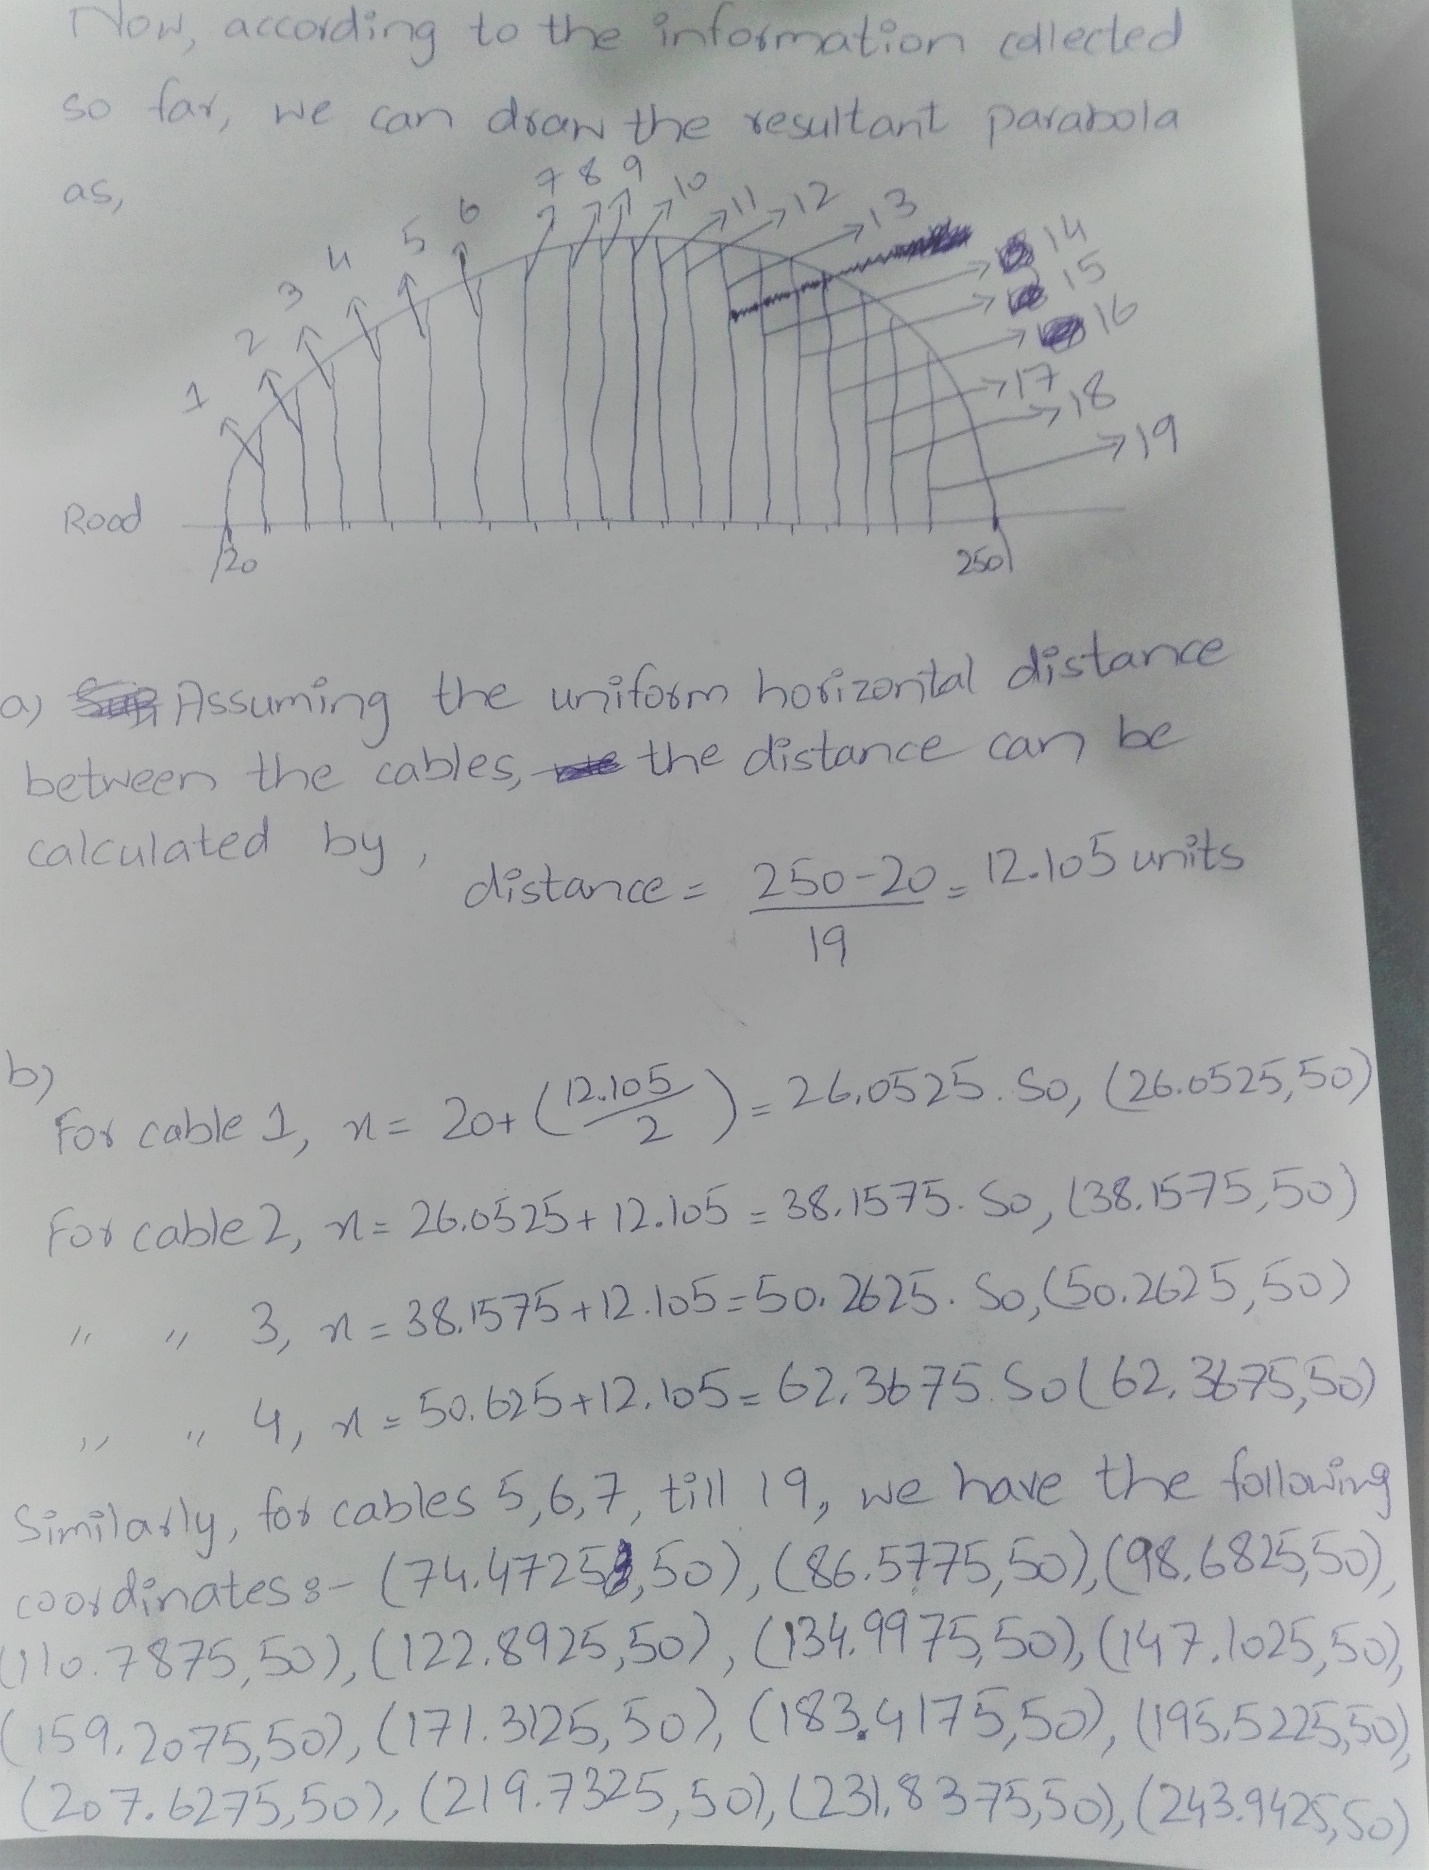 Now, according to the information collected
so far, we can draw the resultant parabola
as,
1 2 3 4 5 6 7 8 9 10 11 12 13
14
15
16
17
18
19
Road
20 250
a) Assuming the uniform horizontal distance
between the cables, the distance can be
calculated by,
distance = 250-20/19 = 12.105 units
b)
For cable 1, x = 20+(12.105/2) = 26.0525. So, (26.0525,50)
For cable 2, x = 26.0525+12.105 = 38.1575. So, (38.1575,50)
" " 3, x = 38.1575+12.105=50.2625. So,(50.2625,50)
" " 4, x = 50.625+12.105=62.3675. So(62.3675,50)
Similarly, for cables 5,6,7, till 19, we have the following
coordinates:- (74.4725,50), (86.5775,50),(98.6825,50),
(110.7875,50),(122.8925,50), (134.9975,50),(147.1025,50),
(159.2075,50),(171.3125,50), (183.4175,50), (195.5225,50),
(207.6275,50), (219.7325,50),(231.8375,50),(243.9425,50)